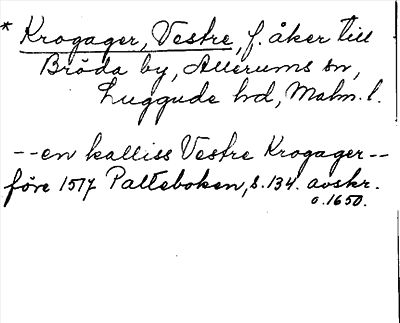 * Krogager, Vestre, f. åker till
Bröda by, Allerums sn,
Luggude hd, Malm. l.
--en kalliss Vestre Krogager--
före 1517 Palteboken, s. 134. avskr.
o. 1650.